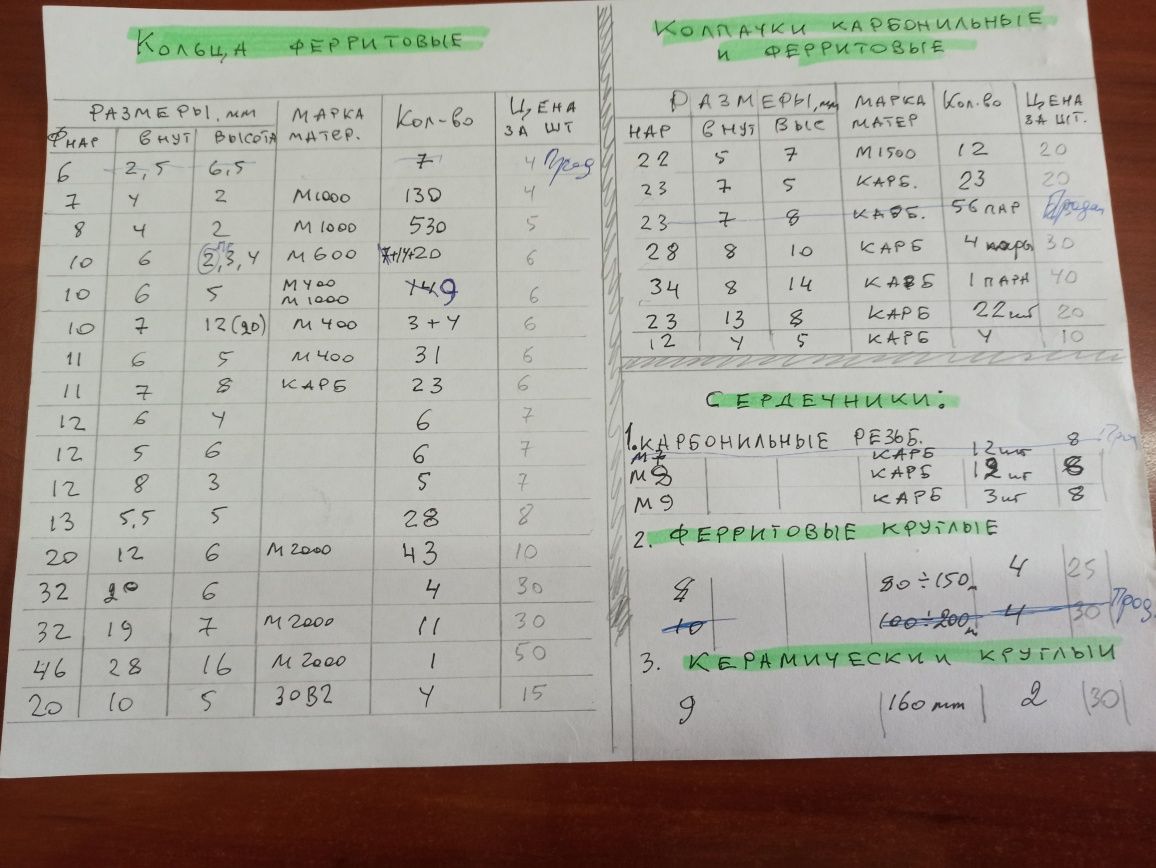 Кольца ферритовые
Размеры, мм Марка матер. Кол-во Цена за шт
Фнар внут высота
6 2,5 6,5 7 4 Прод
7 4 2 М1000 130 4
8 4 2 М1000 530 5
10 6 2, 3, 4 М600 7+14+20 6
10 6 5 М400 М1000 9 6
10 7 12(20) М400 3+4 6
11 6 5 М400 31 6
11 7 8 КАРБ 23 6
12 6 4 6 7
12 5 6 6 7
12 8 3 5 7
13 5,5 5 28 8
20 12 6 М2000 43 10
32 20 6 4 30
32 19 7 М2000 11 30
46 28 16 М2000 1 50
20 10 5 30В2 4 15
Колпачки карбонильные
и ферритовые
Размеры, мм Марка матер Кол.во Цена за шт.
нар внут выс
22 5 7 М1500 12 20
23 7 5 КАРБ. 23 20
23 7 8 КАРБ. 56 пар Продан
28 8 10 КАРБ 4 пары 30
34 8 14 КАРБ 1 пара 40
23 13 8 КАРБ 22шт 20
12 4 5 КАРБ 4 10
Сердечники:
1. Карбонильные резьб.
М7 КАРБ 12шт 8
М8 КАРБ 12 шт 8
М9 КАРБ 3шт 8
2. Ферритовые круглые
8 80÷150 4 25
10 100÷200 4 30 Прод.
3. Керамически круглый
9 160 mm 2 30